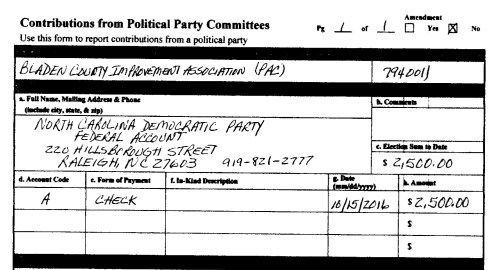 Contributions from Political Party Committees
Pg 1 of 1 Amendment Yes No
Use this form to report contributions from a political party
BLADEN COUNTY IMPROVEMENT ASSOCIATION (PAC) 794001
a. Full Name, Mailing Address & Phone
(include city, state, & zip)
b. Comments
NORTH CAROLINA DEMOCRATIC PARTY
FEDERAL ACCOUNT
220 HILLSBOROUGH STREET
RALEIGH, NC 27603 919-821-2777
c. Election Sum to Date
$ 2,500.00
d. Account Code e. Form of Payment f. In-Kind Description g. Date (mm/dd/yyyy) h. Amount
A CHECK 10/15/2016 $ 2,500.00
$
$